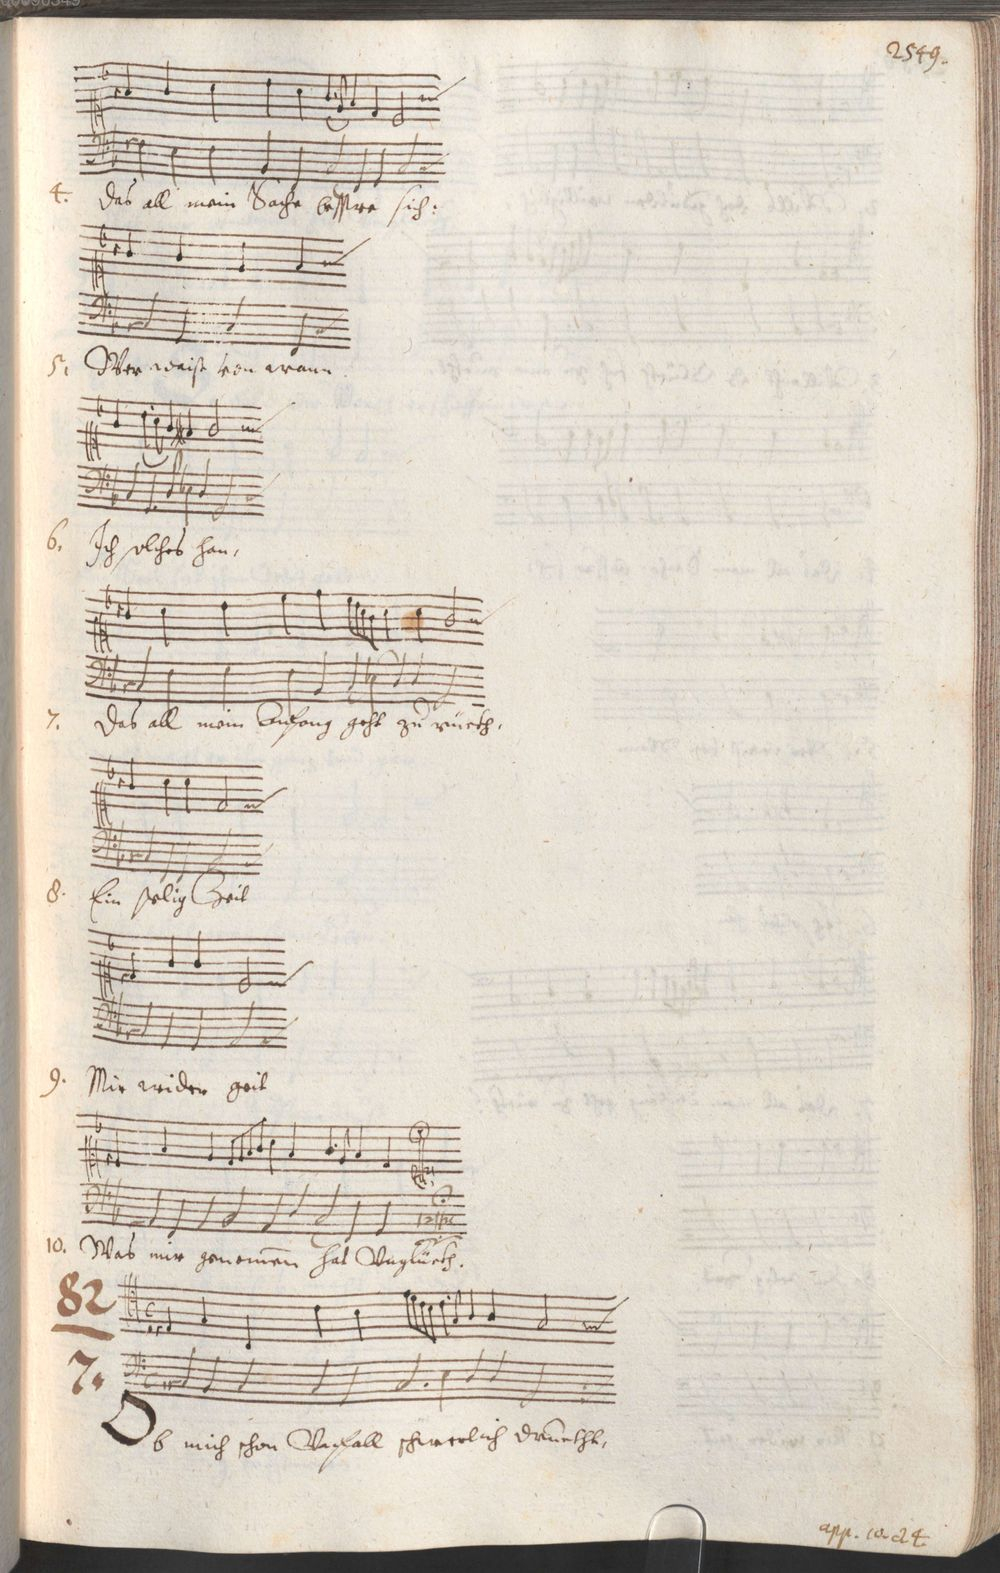 2549.
4. Das all mein Sache bessere sich:
5. Wer waist von wann
6. Ich solches han,
7. Das all mein Anfang geht zu rückh,
8. Ein selig Zeit
9. Mir wider geit
10. Was mir genomen hat Unglückh.
82
7.
Ob mich schon Unfall schwerlich druckht,
app. 10.24